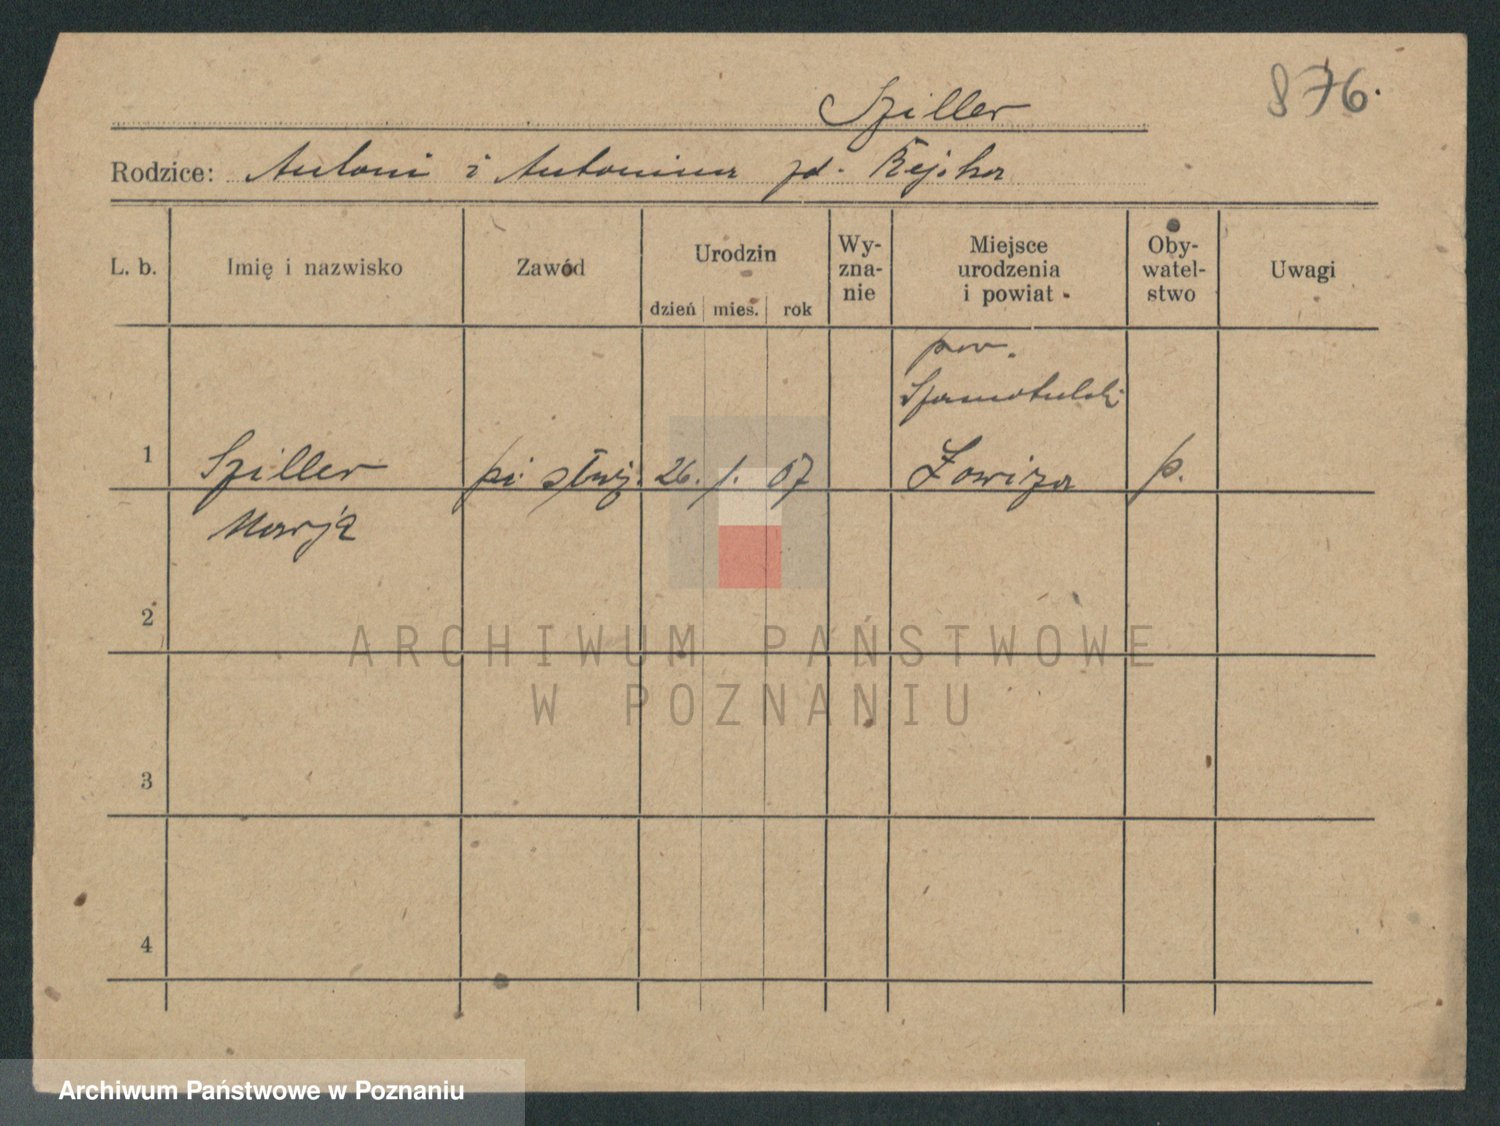 876.
Sziller
Rodzice: Antoni i Antonina zd. Rejska
L. b. Imię i nazwisko Zawód Urodzin dzień mies. rok Wy-zna-nie Miejsce urodzenia i powiat Oby-watel-stwo Uwagi
pow.
Szamotulski
1 Sziller 26. 1. 07 p.
Marja
2
ARCHIWUM PAŃSTWOWE
W POZNANIU
3
4
Archiwum Państwowe w Poznaniu